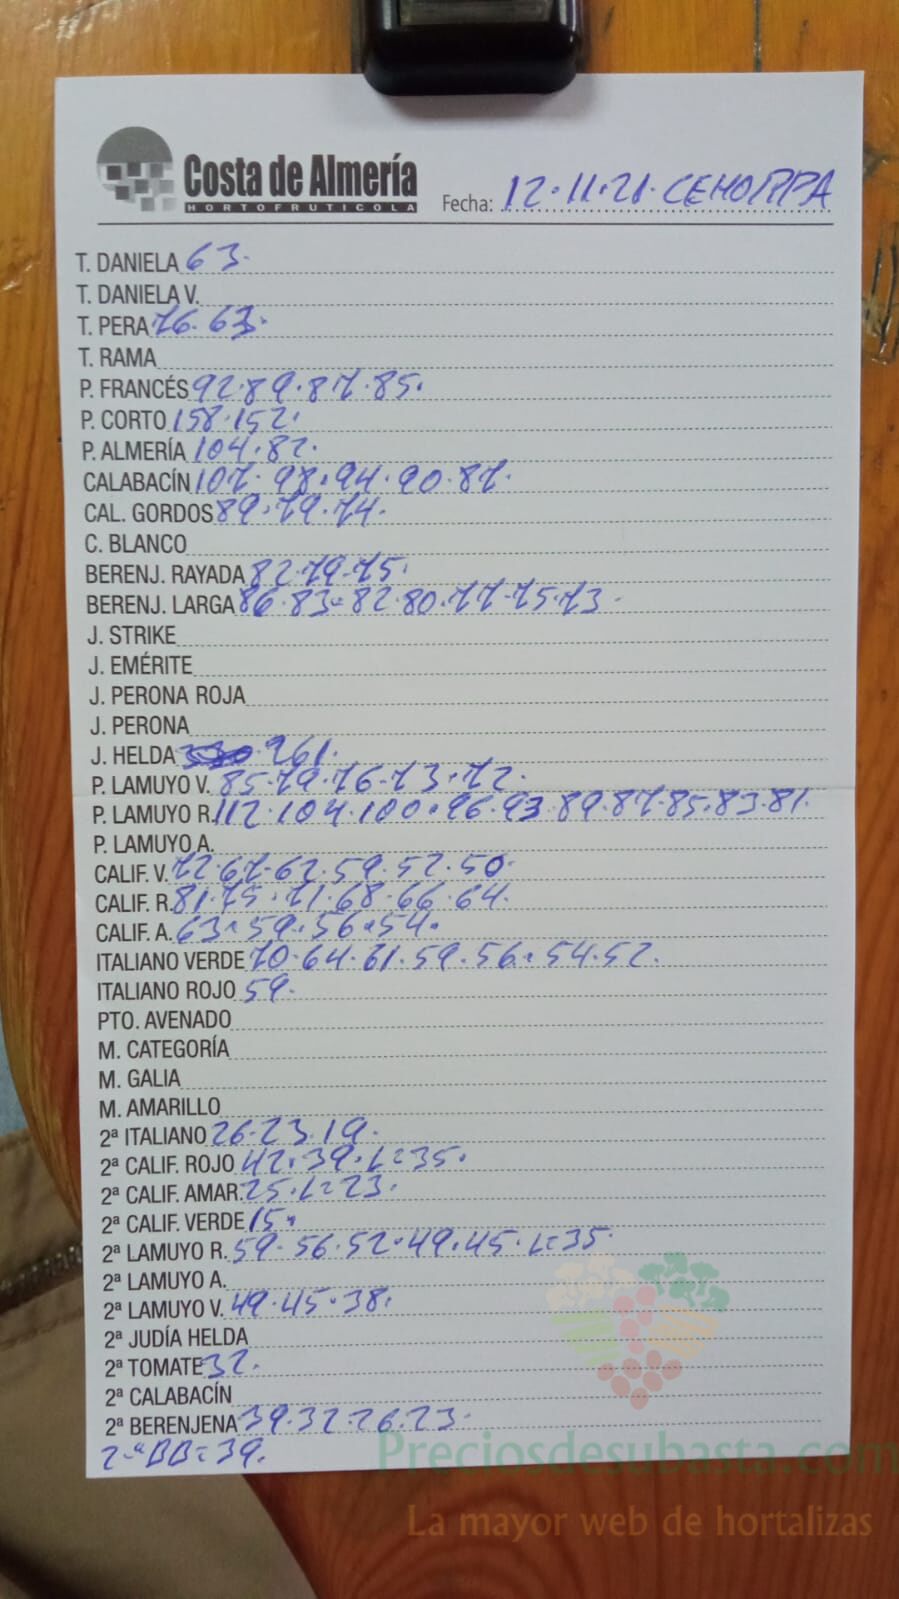 Costa de Almería
HORTOFRUTICOLA
Fecha: 12.11.21. CEHORPA
T. DANIELA 63.
T. DANIELA V.
T. PERA 76.63.
T. RAMA
P. FRANCÉS 92.89.87.85.
P. CORTO 158.152.
P. ALMERÍA 104.82.
CALABACÍN 107.98.94.90.87.
CAL. GORDOS 89.79.74.
C. BLANCO
BERENJ. RAYADA 82.79.75.
BERENJ. LARGA 86.83.82.80.77.75.73.
J. STRIKE
J. EMÉRITE
J. PERONA ROJA
J. PERONA
J. HELDA 261.
P. LAMUYO V. 85.79.76.73.72.
P. LAMUYO R. 112.104.100.96.93.89.87.85.83.81.
P. LAMUYO A.
CALIF. V. 72.67.62.59.52.50.
CALIF. R. 81.75.71.68.66.64.
CALIF. A. 63.59.56.54.
ITALIANO VERDE 70.64.61.59.56.54.52.
ITALIANO ROJO 59.
PTO. AVENADO
M. CATEGORÍA
M. GALIA
M. AMARILLO
2ª ITALIANO 26.23.19.
2ª CALIF. ROJO 42.39.L=35.
2ª CALIF. AMAR. 25.L=23.
2ª CALIF. VERDE 15.
2ª LAMUYO R. 59.56.52.49.45.L=35.
2ª LAMUYO A.
2ª LAMUYO V. 49.45.38.
2ª JUDÍA HELDA
2ª TOMATE 32.
2ª CALABACÍN
2ª BERENJENA 39.32.26.23.
2ª BB=39.
Preciosdesubasta.com
La mayor web de hortalizas